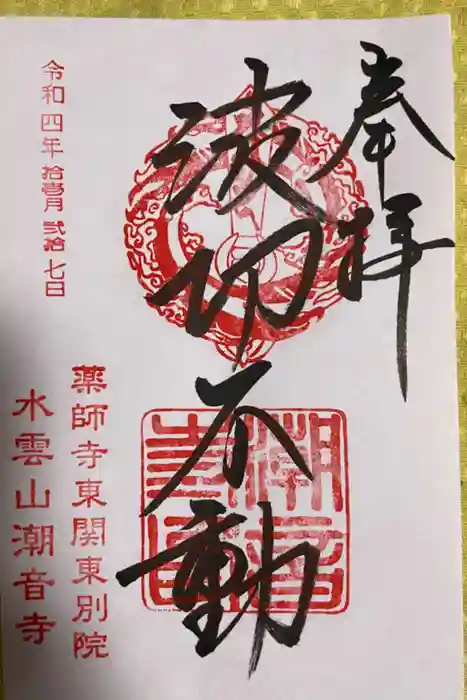 奉拝
波切不動
令和四年拾壱月弐拾七日
薬師寺東関東別院
水雲山潮音寺